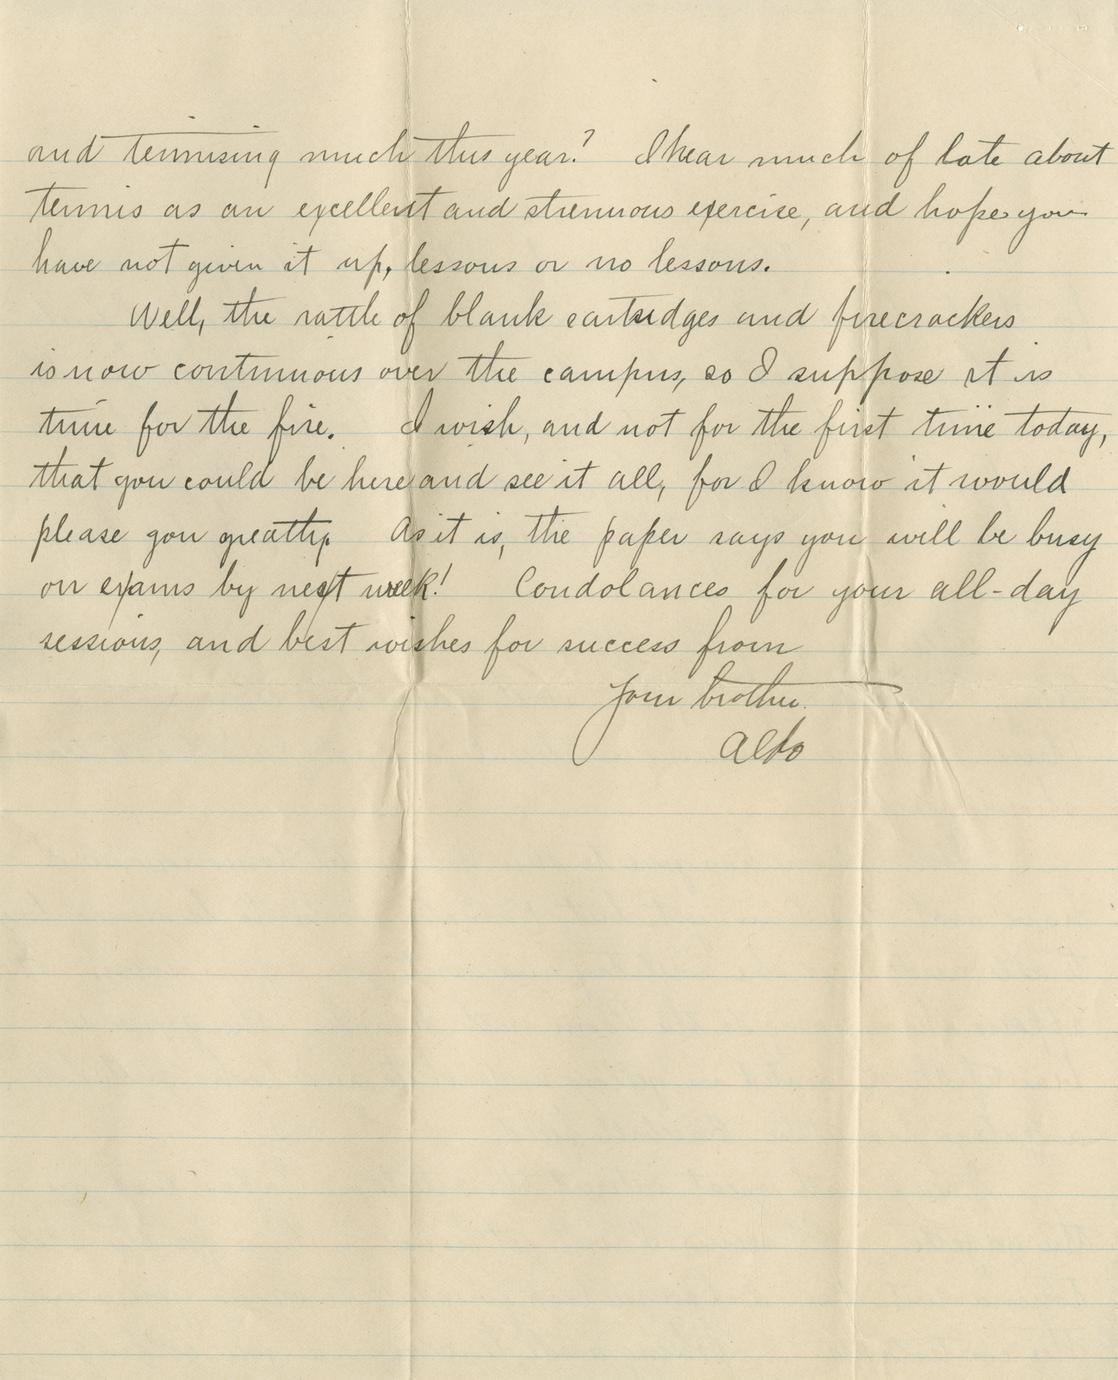 and tennising much this year? I hear much of late about
tennis as an excellent and strenuous exercise, and hope you
have not given it up, lessons or no lessons.
Well, the rattle of blank cartridges and firecrackers
is now continuous over the campus, so I suppose it is
time for the fire. I wish, and not for the first time today,
that you could be here and see it all, for I know it would
please you greatly. As it is, the paper says you will be busy
on exams by next week! Condolances for your all-day
sessions, and best wishes for success from
Your brother.
Aldo